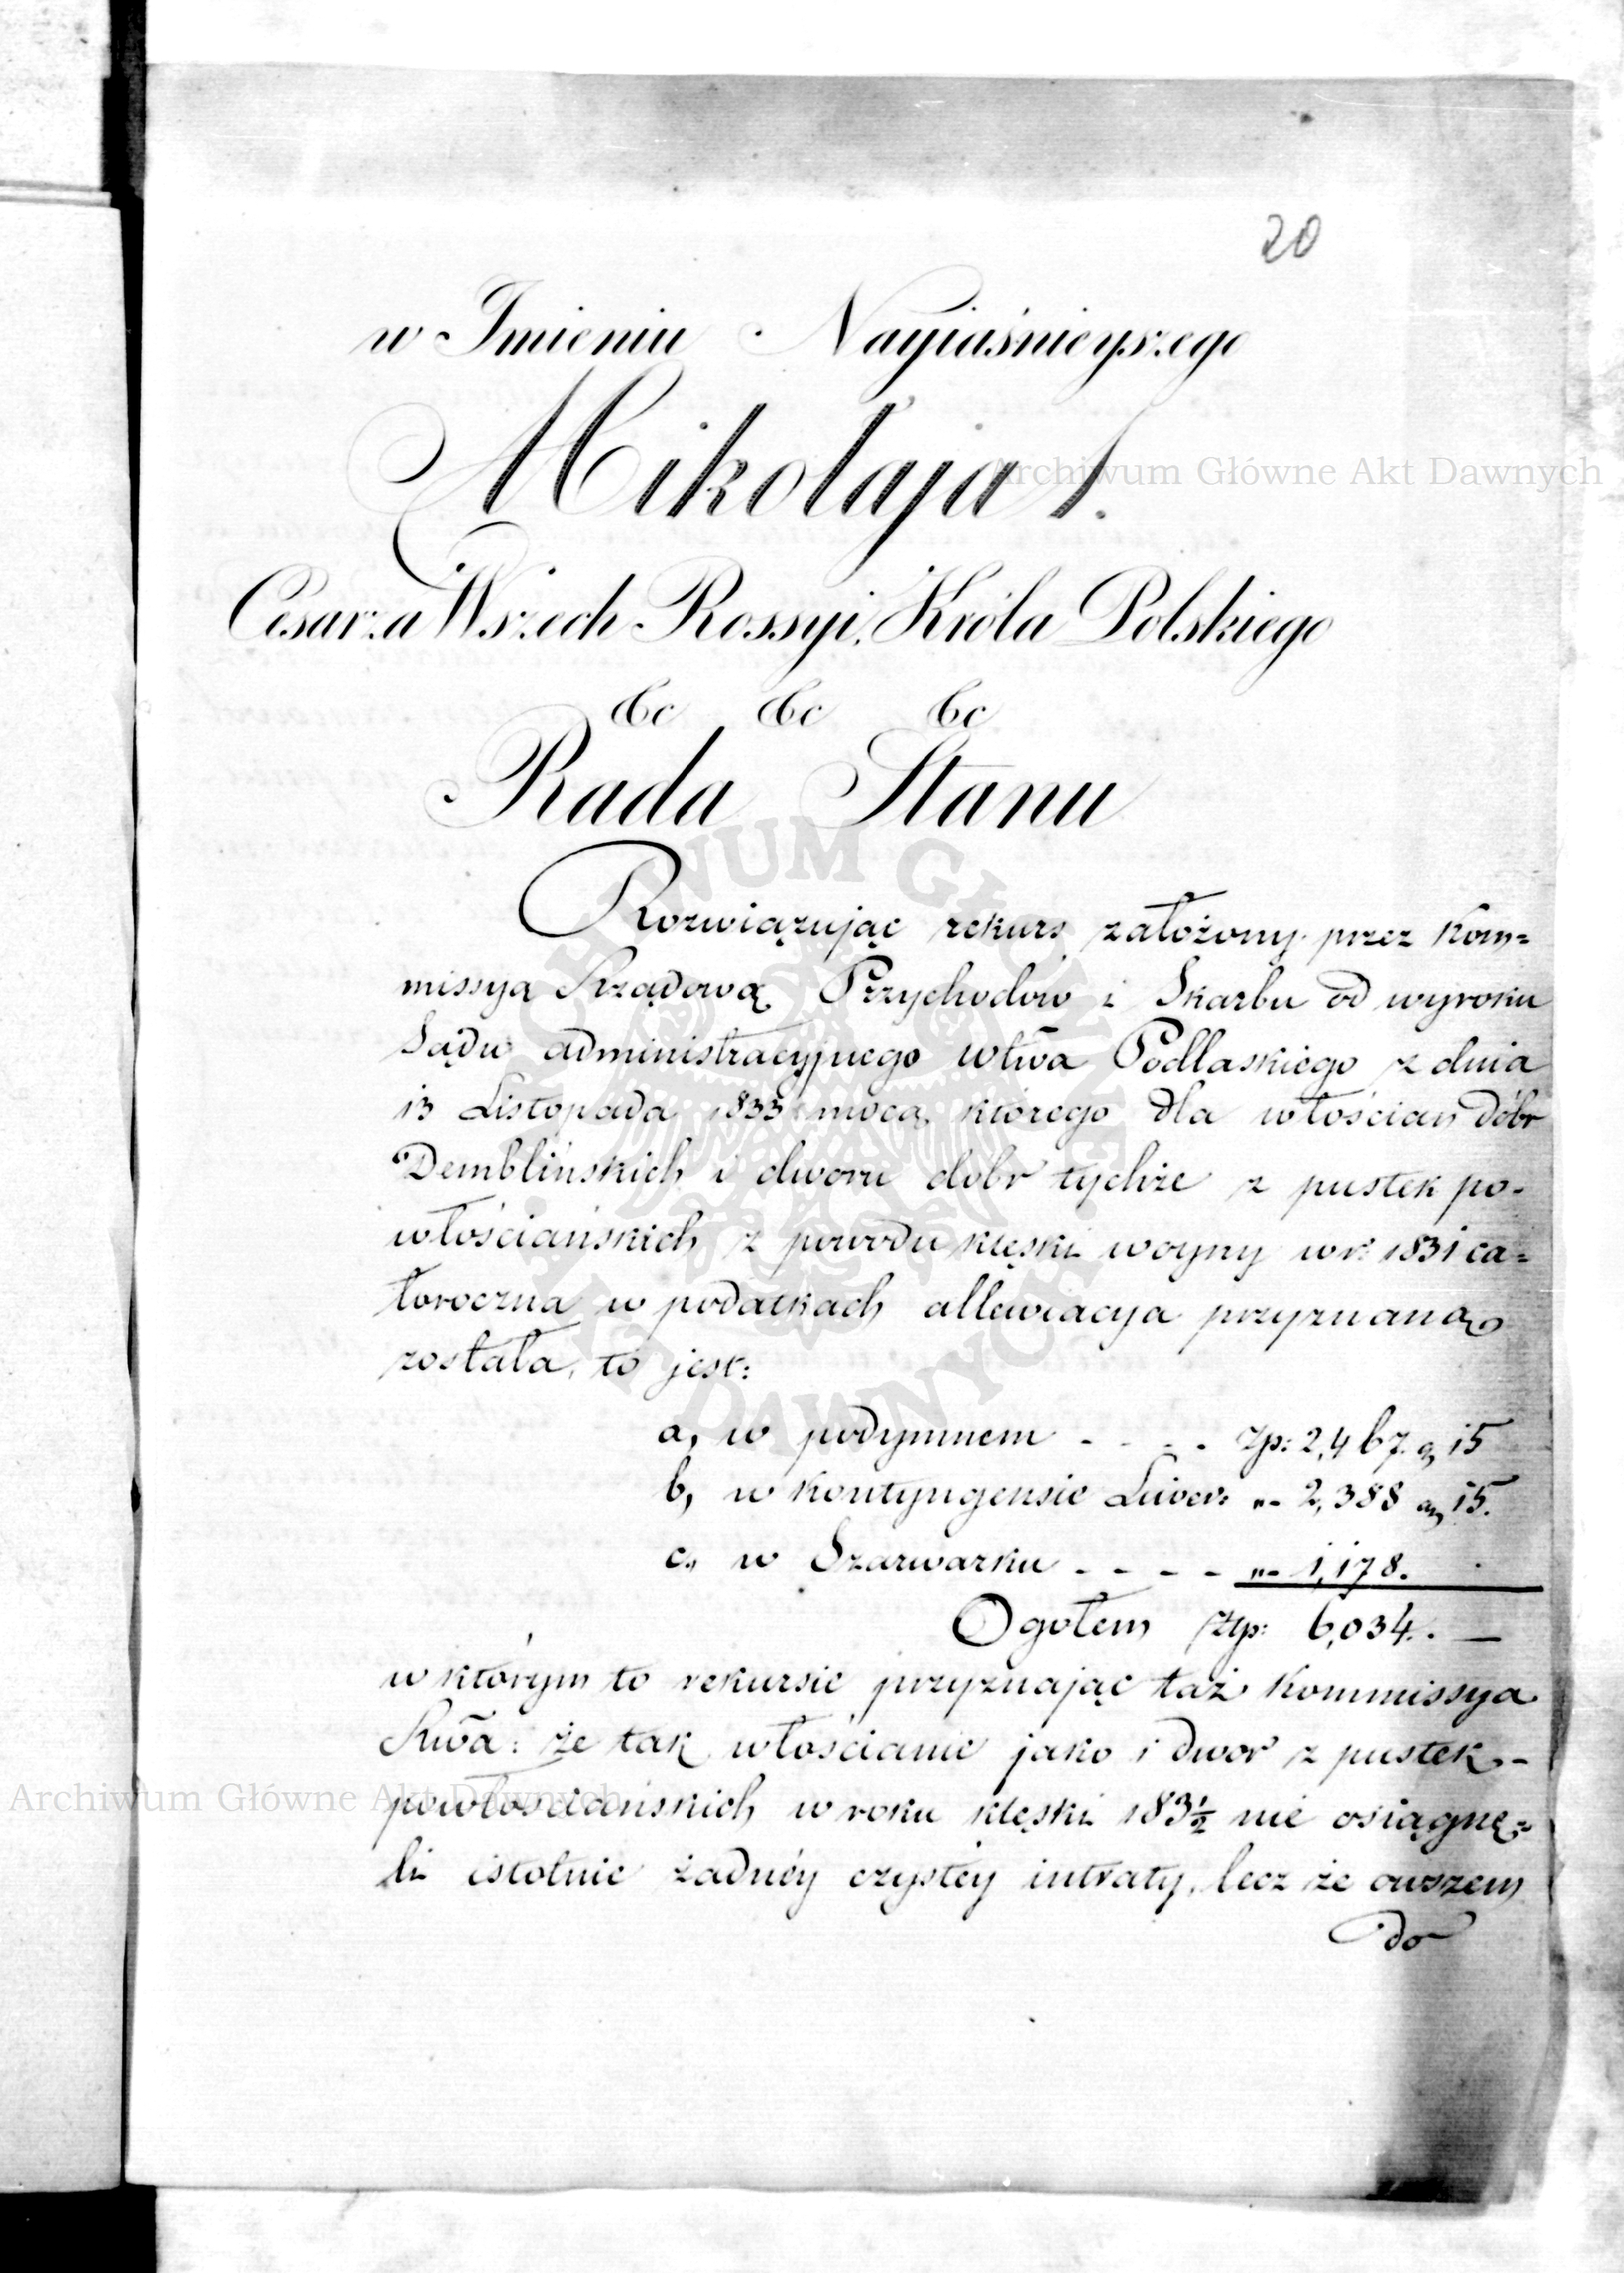 20
w Imieniu Nayiaśnieyszego
Mikołaja I.
Cesarza Wszech Rossyi, Króla Polskiego
&c &c &c
Rada Stanu
Rozwiązując rekurs założony przez Kom=
missyą Rządową Przychodów i Skarbu od wyroku
Sądu administracyjnego Wtwa Podlaskiego z dnia
13 Listopada 1833 mocą którego dla włościan dóbr
Demblińskich i dworu dóbr tychże z pustek po-
włościańskich z powodu klęski woyny w r: 1831 ca=
łoroczna w podatkach allewiacya przyznaną
została, to jest:
a, w podymnem - - - - Zp: 2,467. g 15
b, w Kontyngensie Liwer: „- 2,388 g 15.
c, w Szarwarku - - - - „- 1,178.
Ogołem Złp: 6,034. —
w którym to rekursie przyznając taż Kommissya
Rwa: że tak włościanie jako i dwor z pustek -
powłościańskich w roku klęski 183½ nie osiągnę=
li istotnie żadnéy czystéy intraty, lecz że owszem
do
Archiwum Główne Akt Dawnych
Archiwum Główne Akt Dawnych
ARCHIWUM GŁÓWNE AKT DAWNYCH